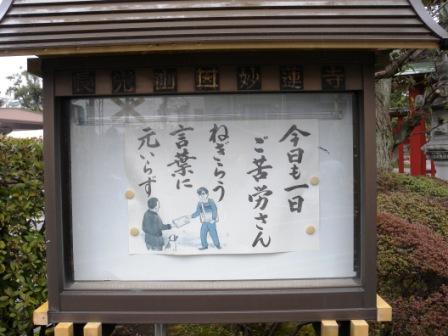 長光山妙蓮寺
今日も一日
ご苦労さん
ねぎらう
言葉に
元いらず